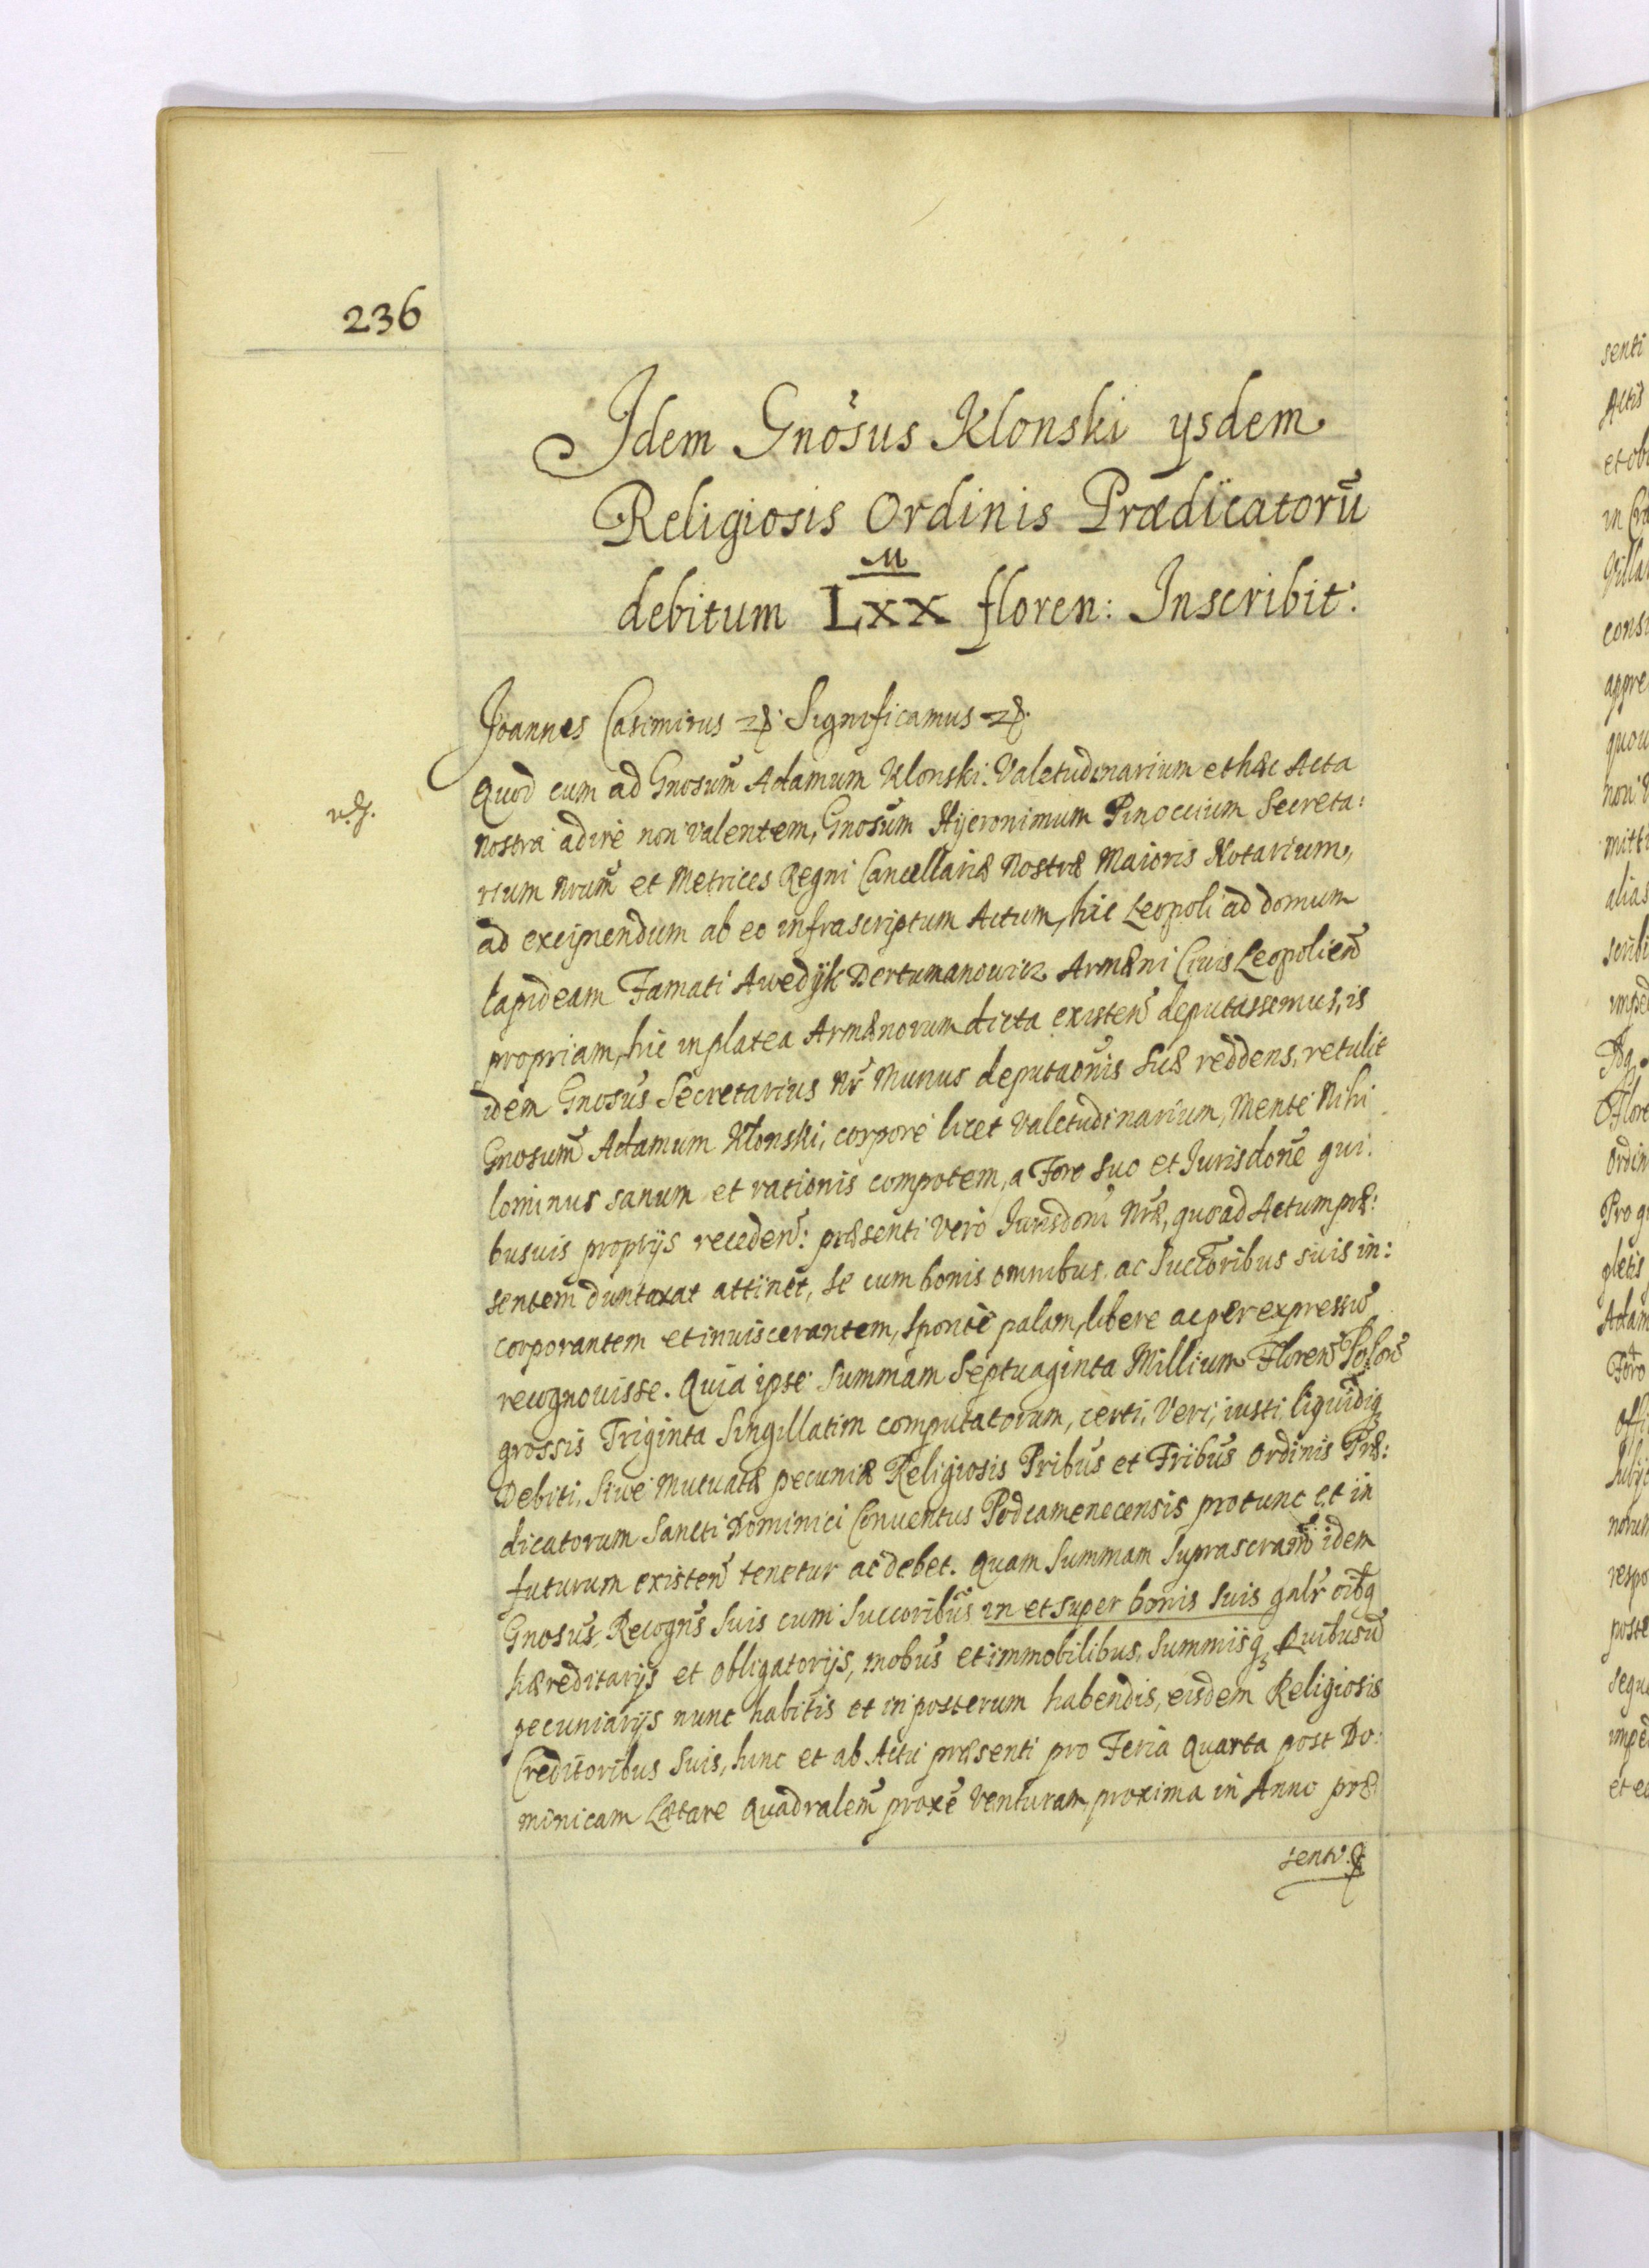 236
Idem Gnosus Klonski ysdem
Religiosis Ordinis Prædicatorũ
M
debitum LXX floren: Inscribit:
Joannes Casimirus Significamus
Quod cum ad Gnosum̃ Adamum Klonski Valetudinarium et hæc Acta
nostra adire non valentem, Gnosum̃ Hyeronimum Pinoccium Secreta:
rium Nrum̃ et Metrices Regni Cancellariæ Nostræ Maioris Notarium,
ad excipiendum ab eo infrascriptum Actum, hic Leopoli ad domum
lapideam Famati Awedyk Dertumanowicz Armæni Civis Leopolien̄
propriam, hic in platea Armænorum dicta existen̄ deputassemus, is
idem Gnosus̃ Secretarius Nr̃ Munus deputaõnis suæ reddens, retulit
Gnosum̃ Adamum Klonski, corpore licet valetudinarium, Mente Nihi
lominus sanum et rationis compotem, a Foro suo et Jurisdone qui:
busuis proprijs receden̄: præsenti vero Jurisdoni Nræ, quoad Actum præ:
sentem duntaxat attinet, se cum bonis omnibus ac Succoribus suis in:
corporantem et inuiscerantem, sponte palam, libere ac per expressum̃
recognouisse. Quia ipse Summam Septuaginta Millium Floren̄ Polon̄
grossis Triginta Singillatim computatorum, certi, Veri, iusti, liquidiq
Debiti, Siue Mutuatæ pecuniæ Religiosis Pribus̃ et Fribus̃ Ordinis Præ:
dicatorum Sancti Dominici Conuentus Podcamenecensis protunc et in
futurum existen̄ tenetur ac debet. Quam Summam Suprascram̃ idem
Gnosus̃ Recogn̄s Suis cum Succoribus̃ in et super bonis suis galr oibq
hæreditarijs et obligatorijs, mobus̃ et immobilibus, Summisq Quibusũ
pecuniarijs nunc habitis et in posterum habendis, eisdem Religiosis
Creditoribus Suis, hinc et ab Actu præsenti pro Feria Quarta post Do:
minicam Lætare Quadralem̃ proxe venturam, proxima in Anno præ
senti